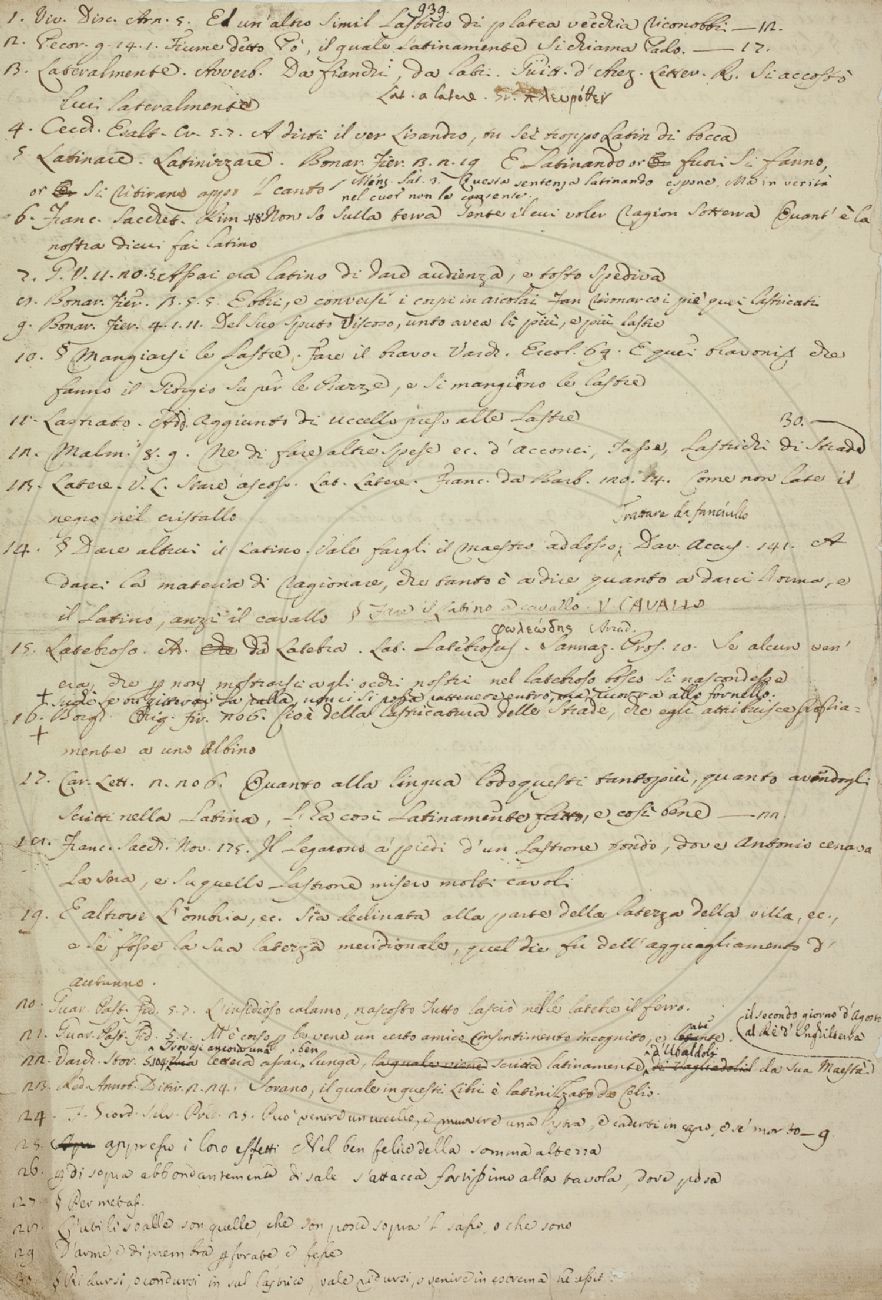 939.
1. Viv. Disc. Arn. 5. Ed un'altro simil Lastrico di platea vecchia riconobbi. — 12.
2. Pecor. g. 14. 1. Fiume detto Pò, il quale Latinamente si chiama Pado. — 17.
3. Lateralmente. Avverb. Da fianchi, da lati. Guitt. d'Arez. Lett. R. Si accostò
Lat. a latere. Gr.
lui lateralmente
4. Cecch. Esalt. Cr. 5. 7. A dirti il ver Lisandro, tu sei troppo Latin di bocca
§ Latinare. Latinizzare. Bonar. Fier. 3. 2. 19 E Latinando or fuori si fanno,
or si ritirano appo 'l canto / Menz. Sat. 3. Questa sentenza latinando espone, Ma in verità
nel cuor non la consente.
6. Franc. Sacchet. Rim. 48 Non so sulla terra Gente il cui voler Ragion sotterra Quant' è la
nostra di cui fai latino
7. G. V. 11. 20. 5 Assai era latino di dare audienza, e tosto spediva
8. Bonar. Fier. 3. 5. 5. Ebbri, e conversi i crepi in
9. Bonar. Fier. 4. 1. 11. Del suo sputo viscoso, unto avea lì più, e più lastre
10. § Mangiarsi le Lastre. Fare il bravo. Varch. Ercol. 69. E quei bravoni, che
fanno il Giorgio su per le Piazze, e si mangiono le lastre
11. Lastrato. Add. Aggiunto di uccello preso alle Lastre
30.
12. Malm. 8. 9. Ne di fare altre spese ec. d'acconci, Tasse, Lastrichi di Strade
13. Latere. V. L. Stare ascoso. Lat. Latere. Franc. da Barb. 120. 14. Come non late il
negro nel cristallo
Trattare da fanciullo
14. § Dare altrui il Latino. Vale fargli il Maestro addosso; Dav. Accus. 141. A
darci la materia di ragionare, che tanto è a dire quanto a darci Norma, e
il Latino, anzi il cavallo § Fare il Latino a cavallo. V. CAVALLO
φωλεώδης
15. Latebroso. Ad. da Latebra. Lat. Latebrosus. Sannaz. Pros. 10. Se alcun ven'
era, che p non mostrarsi agli occhi nostri nel latebroso bosco si nascondesse
+ la palla, non ci si possa intenere entro, ma ritorna allo fornello.
16. Borgh. Orig. Fir. 206. Cioè della Lastricatura delle Strade, che egli attribuisce
+ mente a uno Albino
17. Car. Lett. 2. 206. Quanto alla lingua lodo questi tanto più, quanto avendogli
scritti nella Latina, L'ha così Latinamente fatto, e così bene
18. Franc. Sacch. Nov. 175. Il Legarono a' piedi d'un Lastrone tondo, dove Antonio cenava
La sera, e su quello Lastrone misero molti cavoli
19. E altrove L'ombra, ec. sia declinata alla parte della laterza della villa, ec.,
e se fosse la sua laterza meridionale, quel die fu dell'agguagliamento d'
autunno.
20. Guar. Past. Fid. 5. 7. L'insidioso calamo, nascosto Tutto lasciò nelle latebre il ferro.
il secondo giorno d'Agosto
al Re d'Inghilterra
21. Guar. Past. Fid. 5. 1. M'è corso p le vene un certo amico Consentimento incognito, e
22. Vard. Stor. Trovasi ancora una lettera assai ben lunga, la quale scritta latinamente da Sua Maestà
d'Ubaldo
23. Red. Annot. Ditir. 2. 24. Sorano, il quale in questi Libri è latinizzato da Celio.
24. Può venire un uccello, e muovere una lastra, e caderti in capo, e se' morto — 9
25. appresso i loro effetti Nel ben felice della somma altezza
26. p di sopra abbondantemente di sale s'attacca fortissimo alla tavola, dove posa
27. § Per metaf.
28. son quelle, che son poste sopra 'l sasso, o che sono
29. D'arme e di piembra forate e fesse
30. § Ridursi, o condursi in sul lastrico, vale ridursi, o venire in estrema